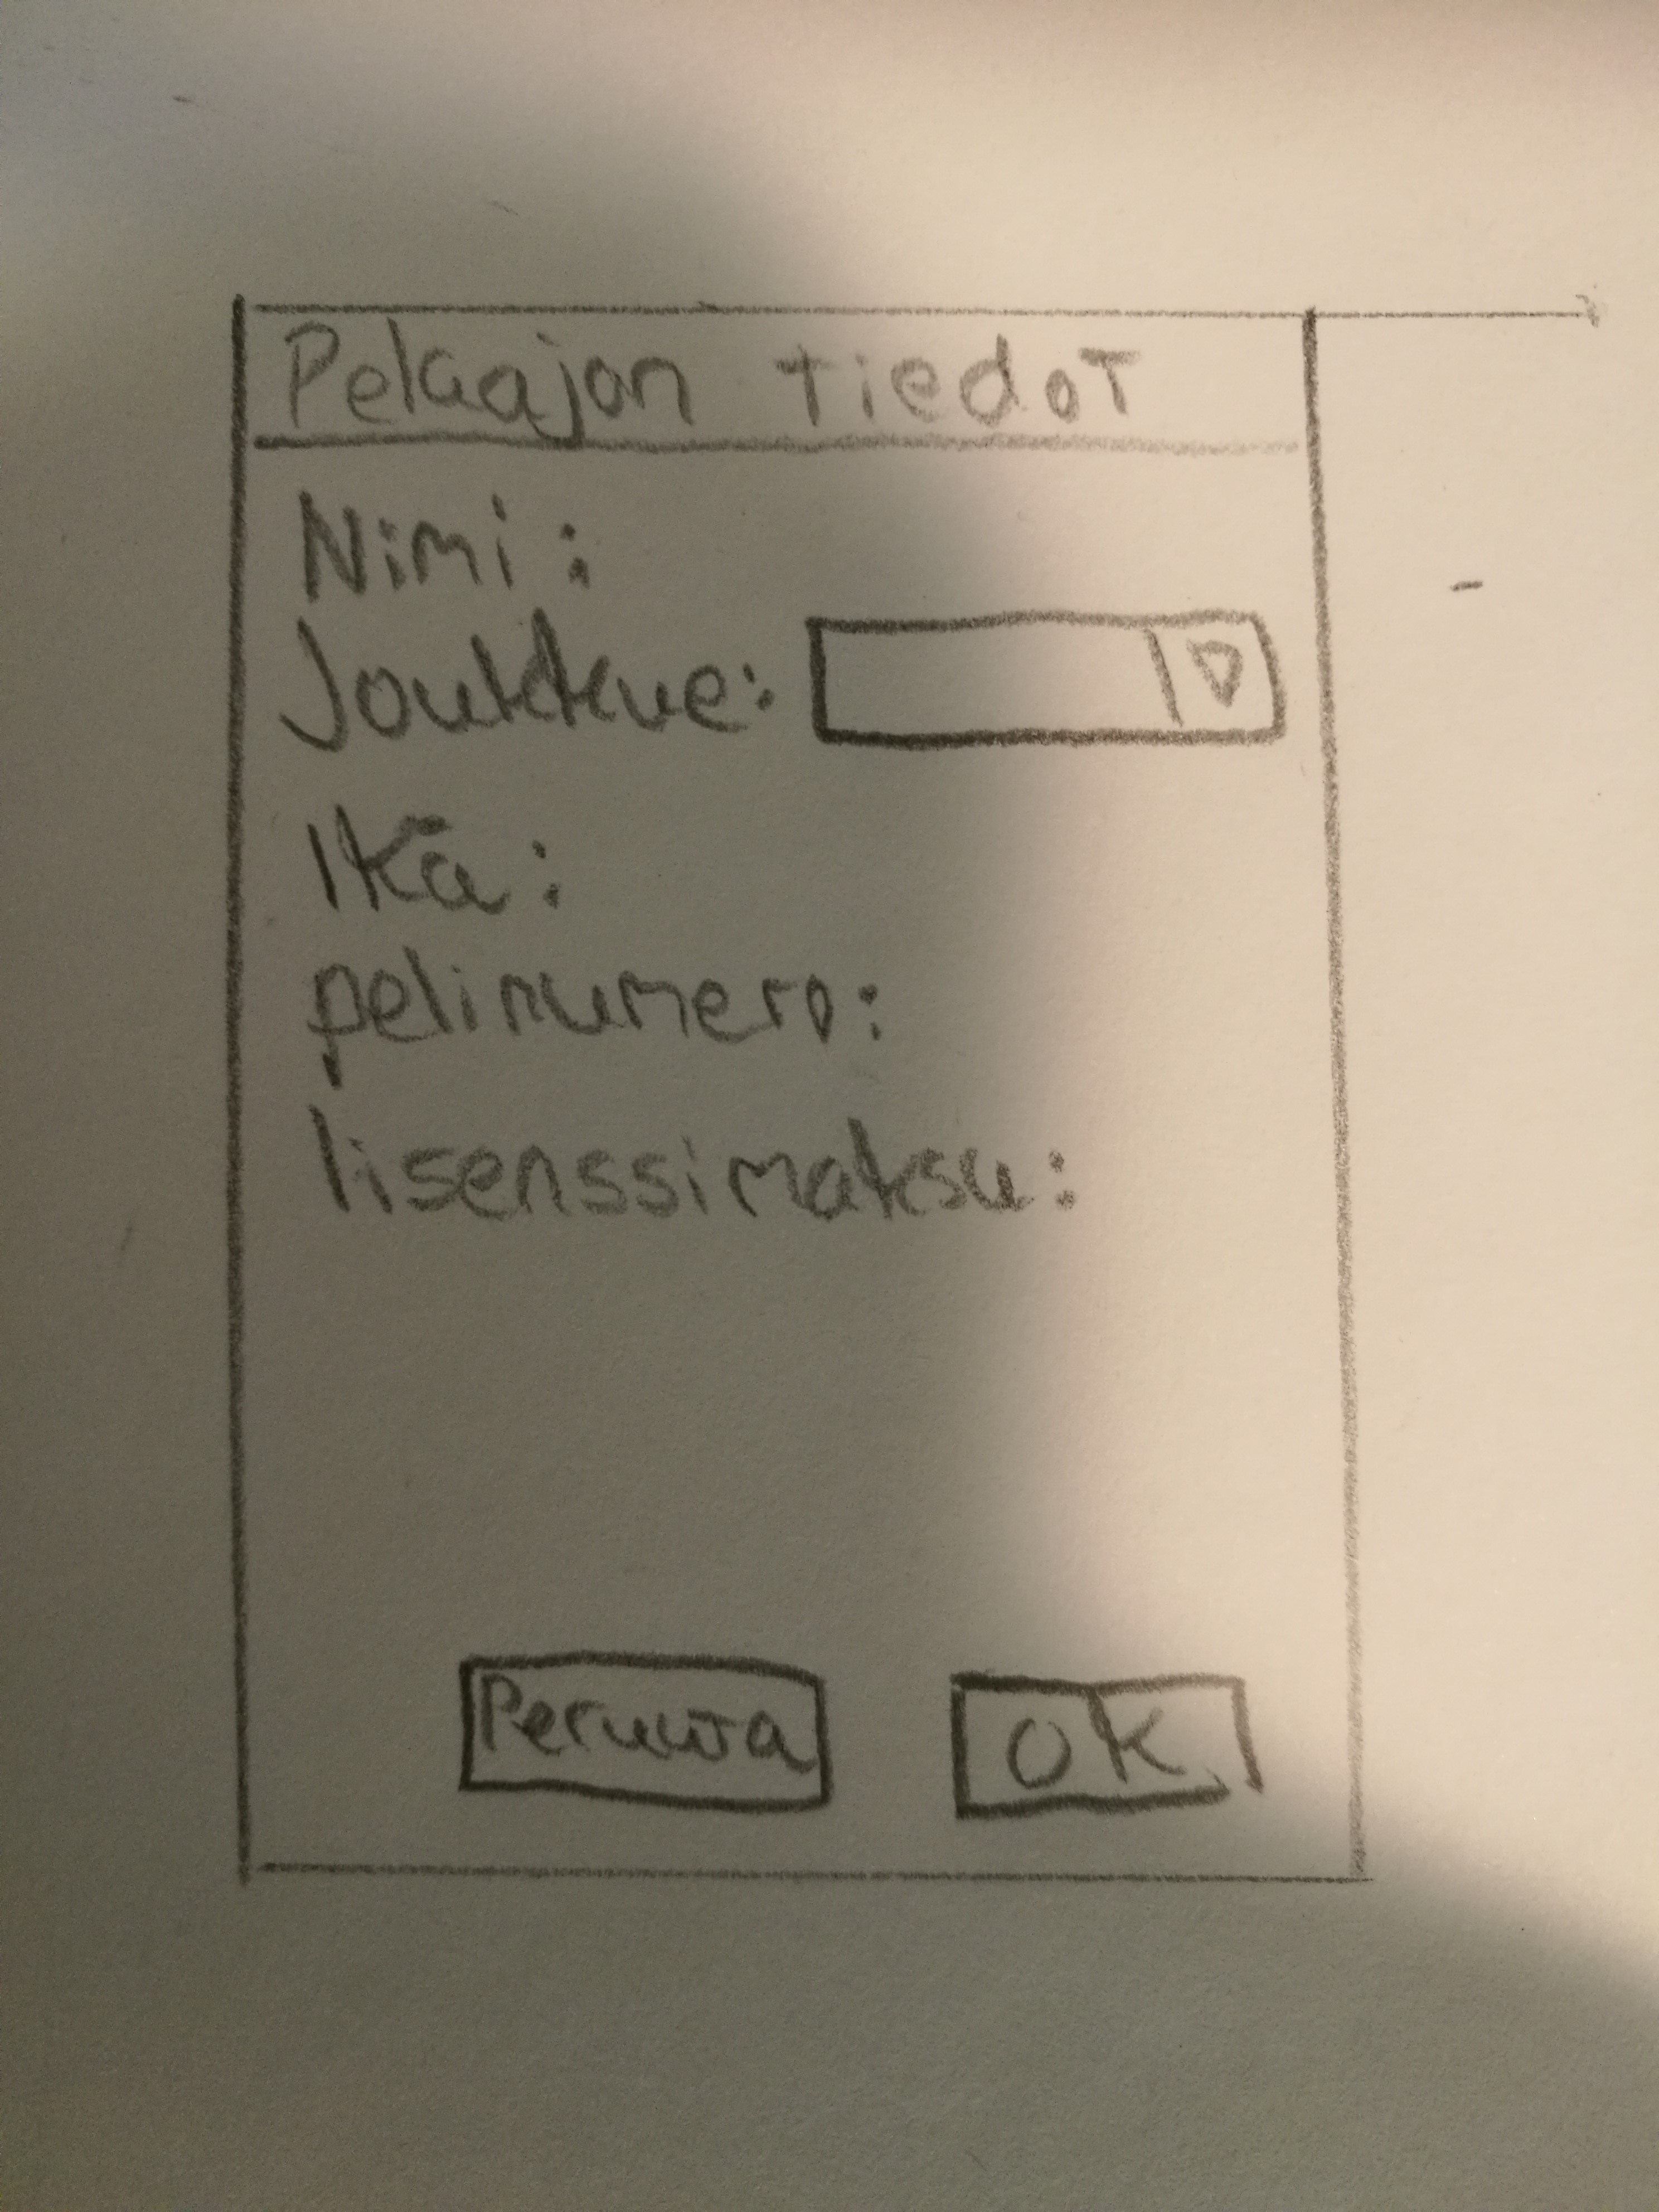 Pelaajan tiedot
Nimi:
Joukkue:
Ikä:
pelinumero:
lisenssimaksu:
Peruuta OK